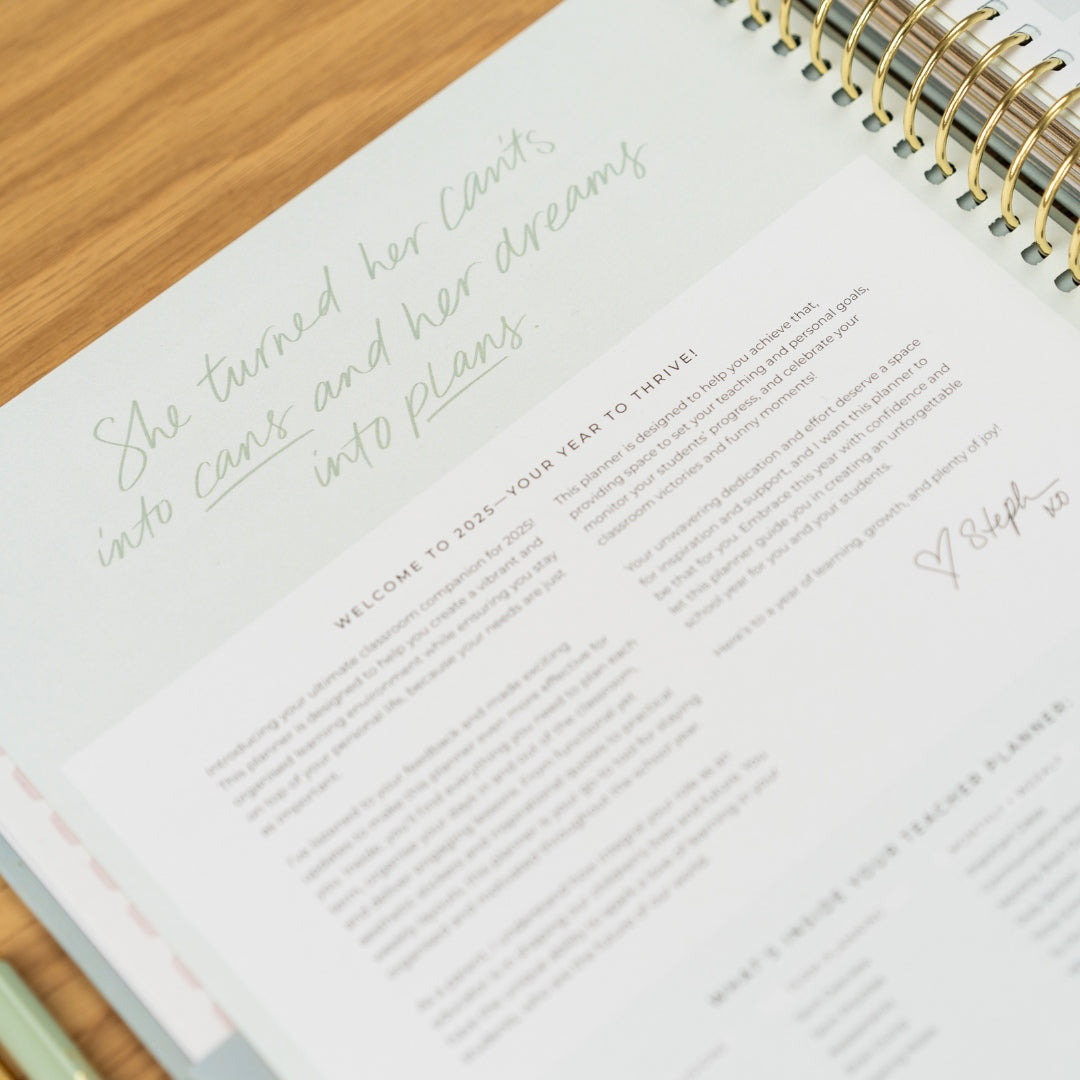 She turned her can'ts
into cans and her dreams
into plans.
WELCOME TO 2025—YOUR YEAR TO THRIVE!
Introducing your ultimate classroom companion for 2025!
This planner is designed to help you create a vibrant and
organised learning environment while ensuring you stay
on top of your personal life, because your needs are just
as important.
I've listened to your feedback and made exciting
updates to make this planner even more effective for
you. Inside, you'll find everything you need to plan each
term, organise your days in and out of the classroom,
and deliver engaging lessons. From functional
to inspirational quotes to practical
this planner is your go-to tool for staying
organised and motivated throughout the school year.
As a parent, I understand how integral your role as an
educator is in shaping our children's lives and future. You
have the unique ability to spark a love of learning in your
students, who are the future of our world.
This planner is designed to help you achieve that,
providing space to set your teaching and personal goals,
monitor your students' progress, and celebrate your
classroom victories and funny moments!
Your unwavering dedication and effort deserve a space
for inspiration and support, and I want this planner to
be that for you. Embrace this year with confidence and
let this planner guide you in creating an unforgettable
school year for you and your students.
Here's to a year of learning, growth, and plenty of joy!
Steph
xo
WHAT'S INSIDE YOUR TEACHER PLANNER: